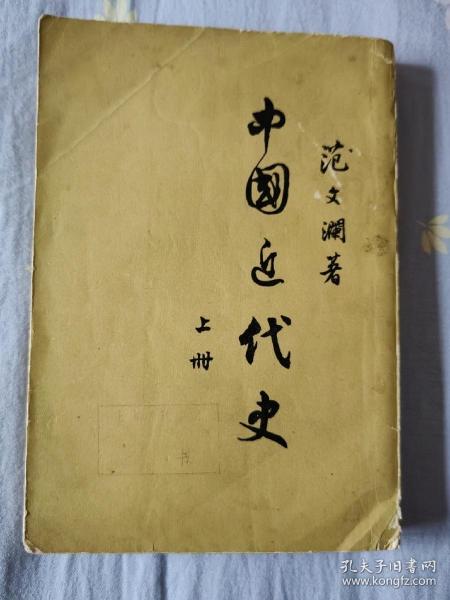 范文瀾著
中國近代史
上冊
书
孔夫子旧书网
www.kongfz.com